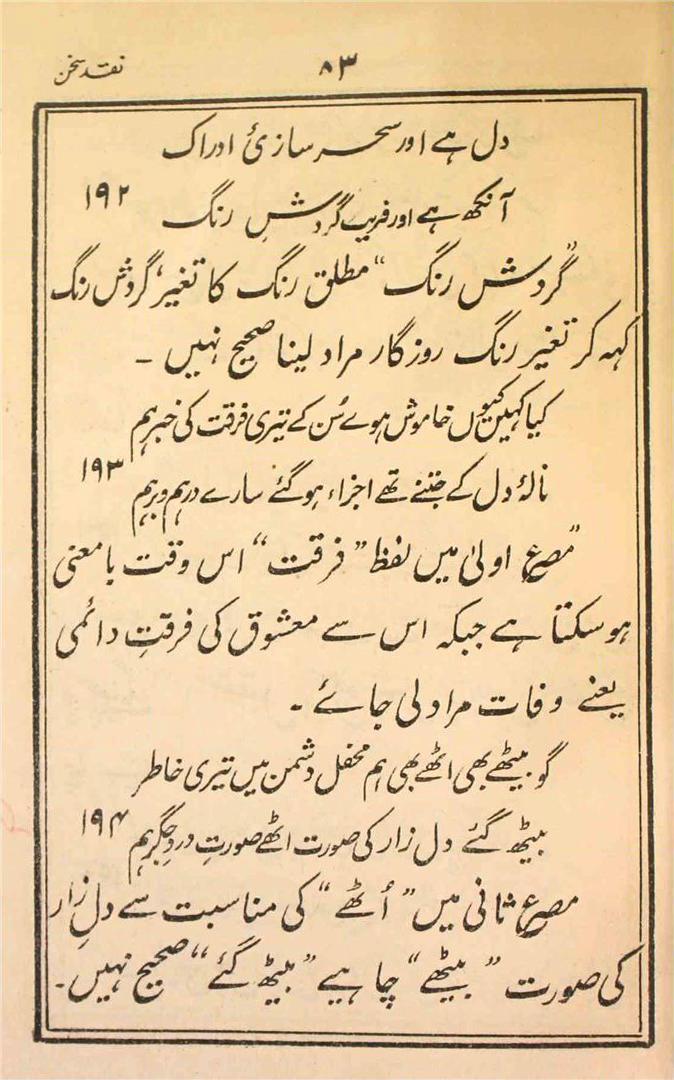 نقد سخن
۸۳
دل ہے اور سحر سازیٔ ادراک
آنکھ ہے اور فریب گردشِ رنگ ۱۹۲
”گردش رنگ“ مطلق رنگ کا تغیر، گردش رنگ
کہہ کر تغیر رنگ روزگار مراد لینا صحیح نہیں ۔
کیا کہیں کیوں خاموش ہوے سُن کے تیری فرقت کی خبر ہم
نالۂ دل کے جتنے تھے اجزاء ہوگئے سارے درہم وبرہم ۱۹۳
مصرع اولیٰ میں لفظ ”فرقت“ اس وقت بامعنی
ہوسکتا ہے جبکہ اس سے معشوق کی فرقتِ دائمی
یعنے وفات مراد لی جائے ۔
گو بیٹھے بھی اٹھے بھی ہم محفل دشمن میں تیری خاطر
بیٹھ گئے دل زار کی صورت اٹھے صورتِ درد جگر ہم ۱۹۴
مصرع ثانی میں ”اُٹھے“ کی مناسبت سے دلِ زار
کی صورت ”بیٹھے“ چاہیے ”بیٹھ گئے“ صحیح نہیں۔